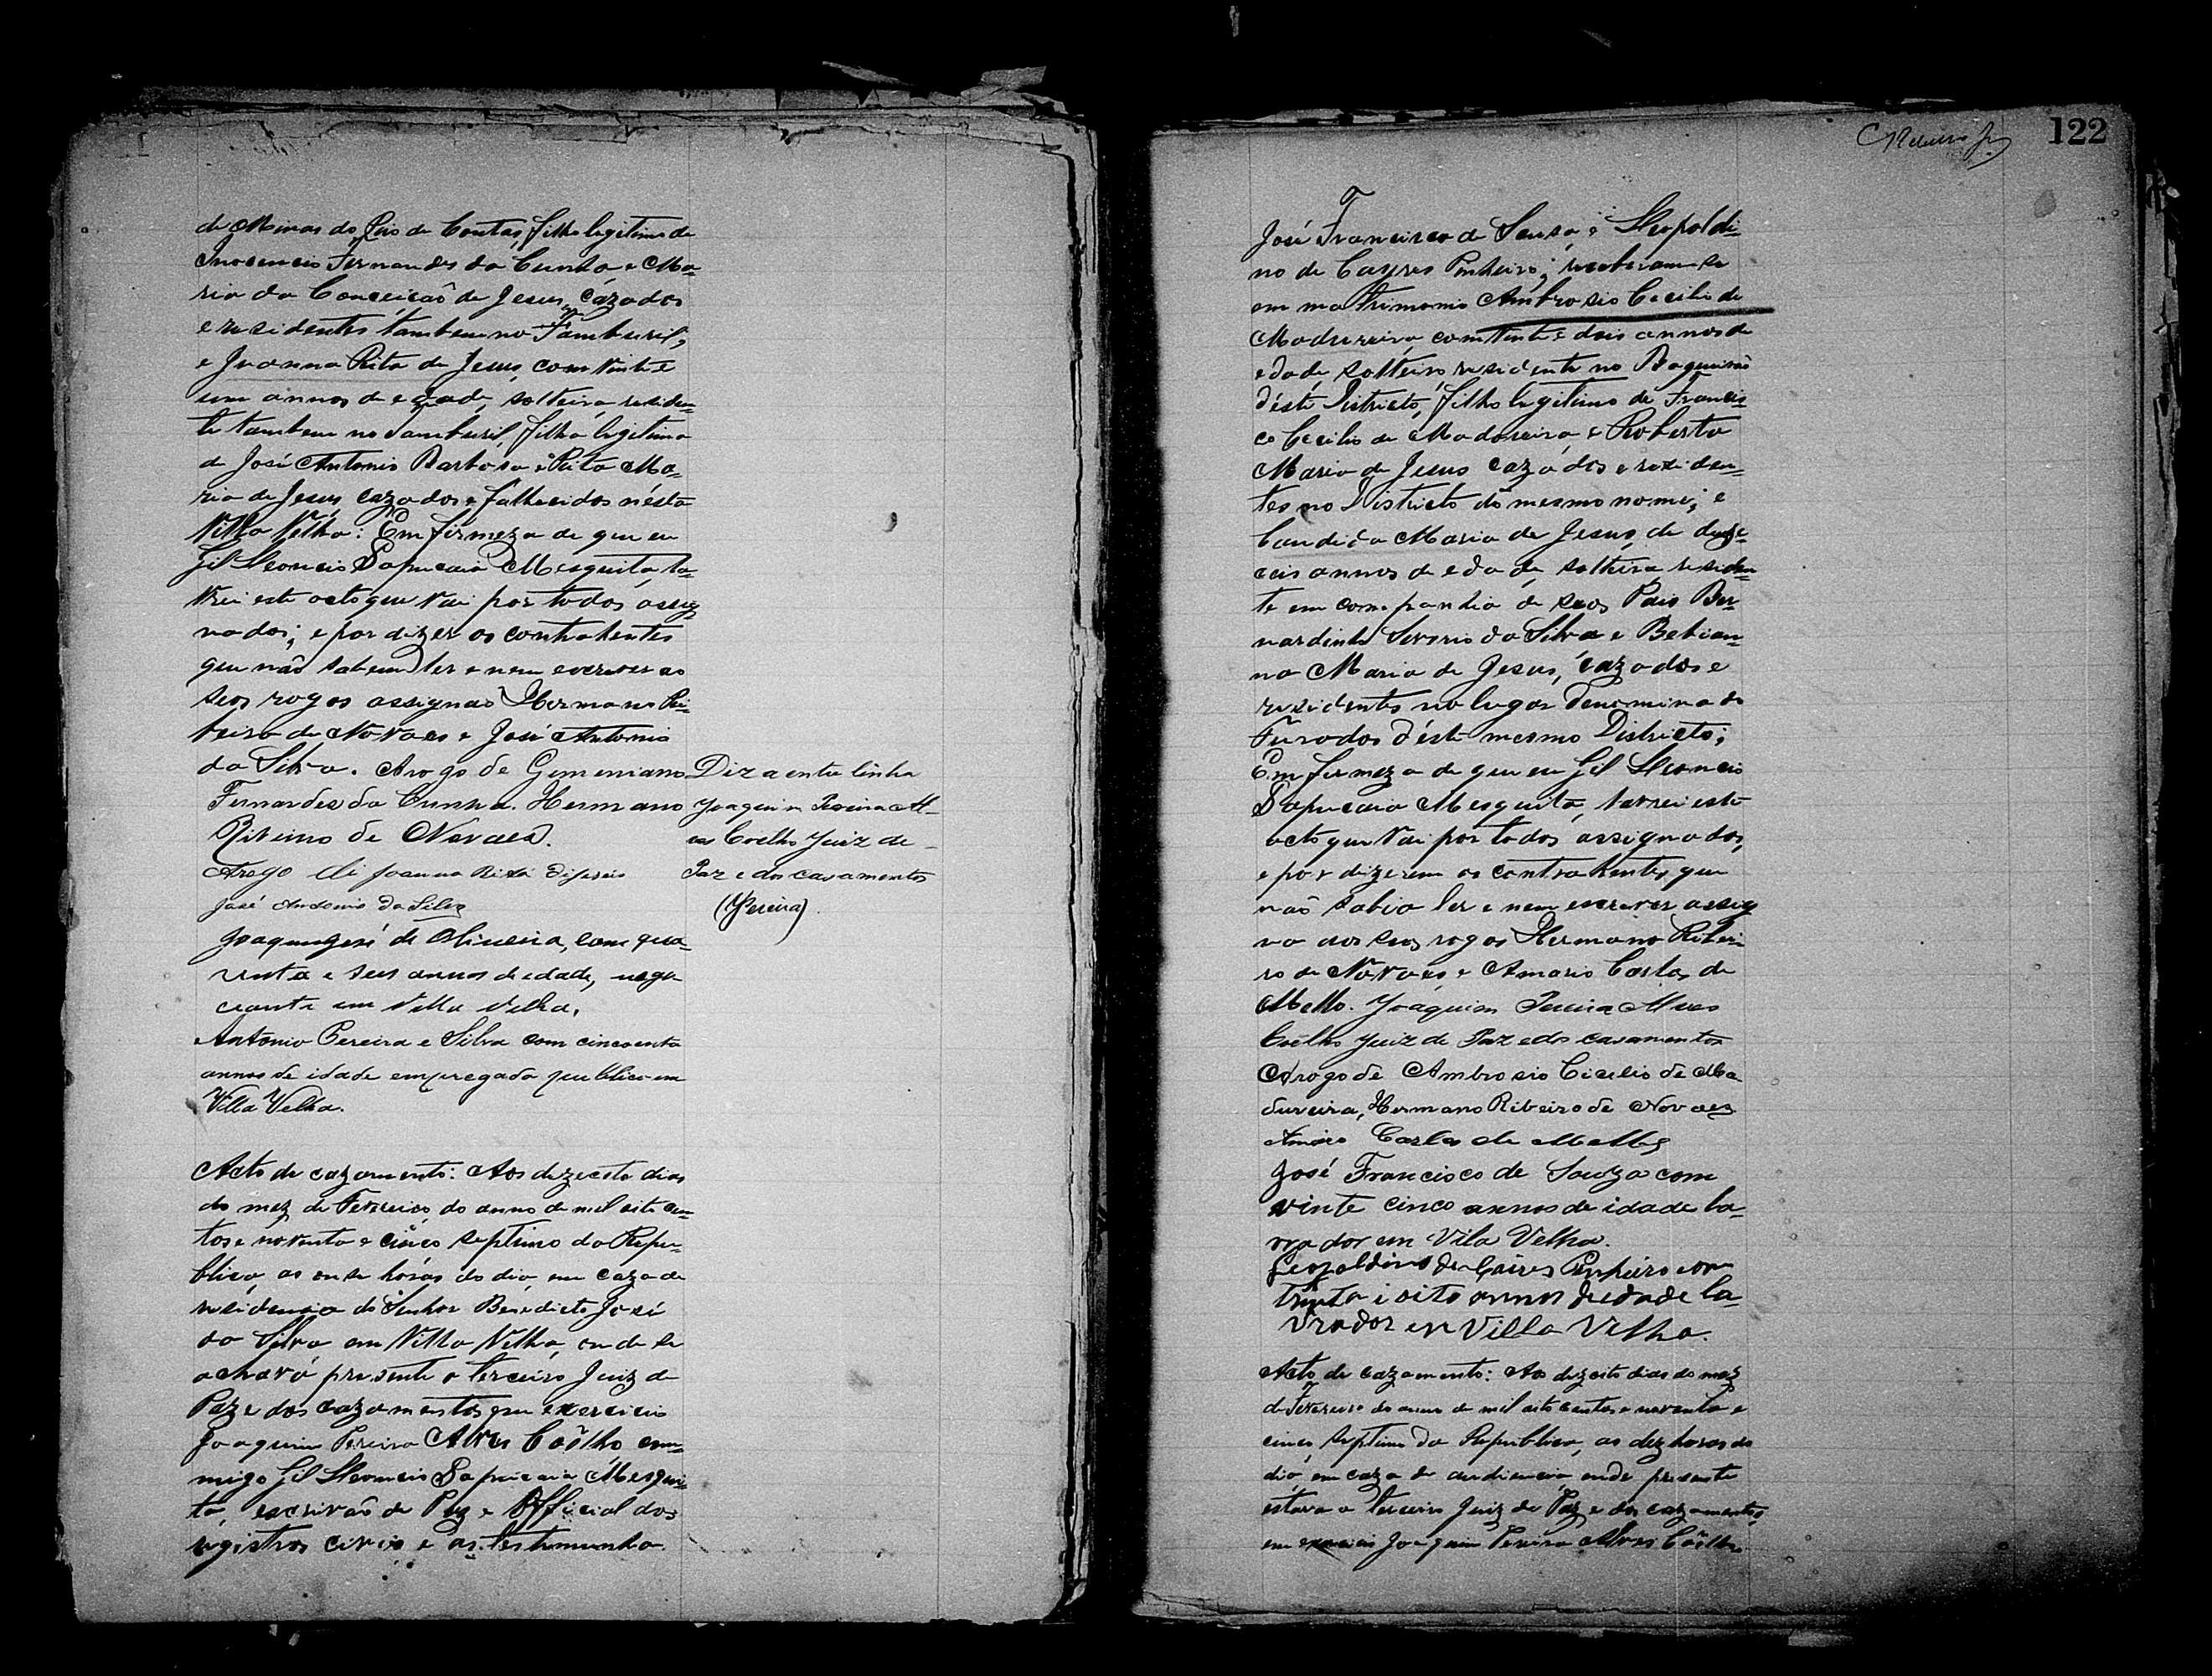 de Minas do Rio de Contas, filho legitimo de
Inocencio Fernandes da Cunha e Ma-
ria da Conceicaõ de Jesus, cazados
e residentes tambem no Tamburil,
e Joanna Rita de Jesus, com vinte e
um annos de edade, solteira residen-
te tambem no Tamburil, filha legitima
de José Antonio Barbosa e Rita Ma-
ria de Jesus, cazados e falhecidos nésta
Villa Vélha: Em firmeza de que eu
Gil Lleoncio Sapucaia Mesquita, la-
vrei este acto que vai por todos assig-
nados; e por dizer os contratentes
que não sabem ler e nem escrever ao
seos rogos assignaõ Hermano Ri-
beiro de Novaes e José Antonio
da Silva. Arogo de Gemeniano
Fernandes da Cunha. Hermano
Ribeiro de Novaes.
Arogo di Joanna Rita dijesus
José Antonio da Silva
Joaquim José de Oliveira, com qua-
renta e seis annos de edade, nego-
ciante em Villa Velha.
Antonio Pereira e Silva com cincoenta
annos de idade empregado publico em
Villa Velha.
Diz a entre linha
Joaquim Pereira Al-
ves Coelho Juiz de
Paz e dos casamentos
(Pereira).
Acto de cazamento: Aos dezeoito dias
do mez de Fevereiro do anno de mil oito cen-
tos e noventa e cinco septimo da Repu-
blica, as onse hóras do dia, em caza de
residencia do Senhor Benedicto José
da Silva em Villa Vélha, onde se
achava presente o terceiro Juiz de
Paz e dos cazamentos em exercicio
Joaquim Pereira Alves Coêlho com-
migo Gil Lleoncio Sapucaia Mesqui-
ta, escrivaõ de Paz e Official dos
registros civis e as testemunha
122
José Francisco de Sousa, e Lleopoldi-
no de Cayres Pinheiro; receberam-se
em matrimonio Ambrosio Cecilio de
Madureira, com vinte e dois annos de
edade, solteiro residente no Boqueiraõ
déste Districto, filho legitimo de Francis-
co Cecilio de Madureira e Roberta
Maria de Jesus cazádos e residen-
tes no Districto do mesmo nome; e
Candida Maria de Jesus, de dese-
ceis annos de edade, solteira residen-
te em companhia de seos Pais Ber-
nardinho Severio da Silva e Bebian-
na Maria de Jesus, cazados e
residentes no lugar denominado
Furados déste mesmo Districto;
Em firmeza de que eu Gil Lleoncio
Sapucaia Mesquita, lavrei este
acto que vai por todos assignados,
e por dizerem os contratentes que
naõ sabia ler e nem escrever assig-
na aos seos rogos Hermano Ribei-
ro de Novaes, e Amario Carlos de
Mello. Joaquim Pereira Alves
Coêlho Juiz de Paz e dos casamentos
Arogo de Ambrosio Cicilio de Ma-
dureira, Hermano Ribeiro de Novaes
Amaro Carlos de Mello
José Francisco de Souza com
vinte cinco annos de idade la-
vrador em Vila Velha.
Leopoldino de Caires Penheiro com
trinta i oito annos de edade la-
vrador em Villa Velha.
Acto de cazamento: Aos dezoito dias do mez
de Fevereiro do anno de mil oito centos e noventa e
cinco septimo da Republica, as dez horas do
dia, em caza de audiencia, onde presente
estava o terceiro Juiz de Paz e dos cazamentos,
em exercicio Joaquim Pereira Alves Coêlho